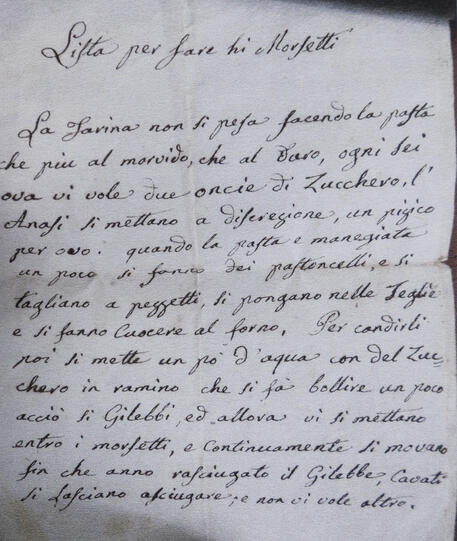 Lista per fare hi Morsetti
La Farina non si pesa facendo la pasta
che piu al morvido, che al Duro, ogni sei
ova vi vole due oncie di Zucchero, l'
Anasi si mettano a discregione, un pizico
per ovo. quando la pasta e manegiata
un poco si fanno dei pastoncelli, e si
tagliano a pezzetti, si pongano nelle Teglie
e si fanno Cuocere al forno. Per condirli
poi si mette un pò d'aqua con del Zuc=
chero in ramino che si fà bollire un poco
acciò si Gilebbi, ed allora vi si mettano
entro i morsetti, e Continuamente si movano
fin che anno rasciugato il Gilebbe, Cavati
si Lasciano asciugare, e non vi vole altro.